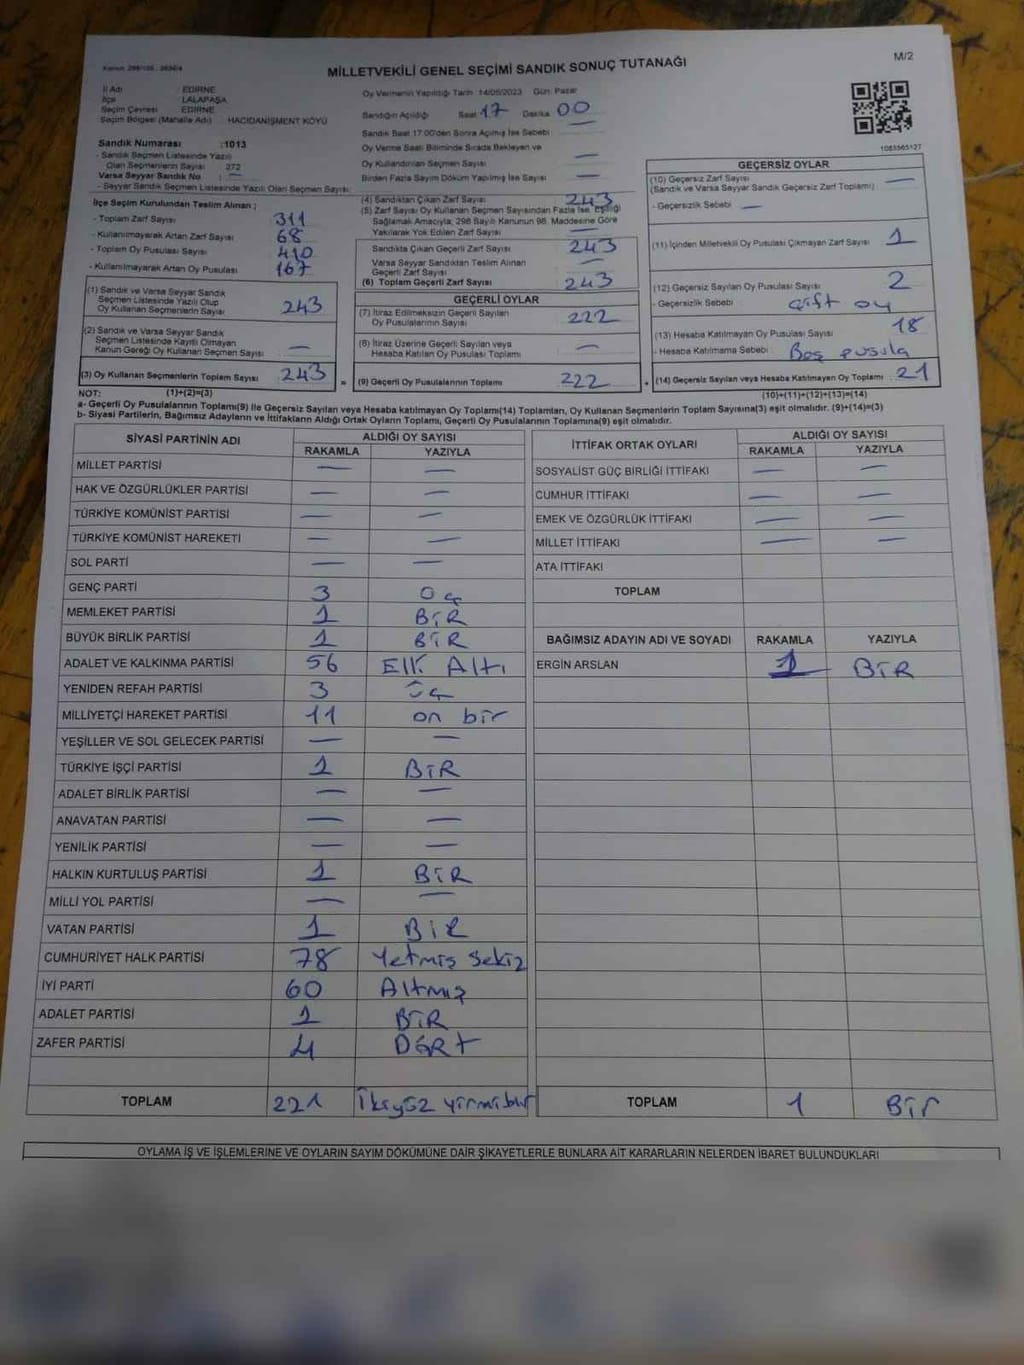 Kanun: 298/105 - 2839/4
M/2
MİLLETVEKİLİ GENEL SEÇİMİ SANDIK SONUÇ TUTANAĞI
İl Adı : EDİRNE
İlçe : LALAPAŞA
Seçim Çevresi : EDİRNE
Seçim Bölgesi (Mahalle Adı) : HACIDANIŞMENT KÖYÜ
Sandık Numarası :1013
- Sandık Seçmen Listesinde Yazılı
Olan Seçmenlerin Sayısı : 272
Varsa Seyyar Sandık No : —
- Seyyar Sandık Seçmen Listesinde Yazılı Olan Seçmen Sayısı:
İlçe Seçim Kurulundan Teslim Alınan ;
- Toplam Zarf Sayısı 311
- Kullanılmayarak Artan Zarf Sayısı 68
- Toplam Oy Pusulası Sayısı 410
- Kullanılmayarak Artan Oy Pusulası 167
(1) Sandık ve Varsa Seyyar Sandık
Seçmen Listesinde Yazılı Olup
Oy Kullanan Seçmenlerin Sayısı 243
(2) Sandık ve Varsa Seyyar Sandık
Seçmen Listesinde Kayıtlı Olmayan
Kanun Gereği Oy Kullanan Seçmen Sayısı —
(3) Oy Kullanan Seçmenlerin Toplam Sayısı 243
Oy Vermenin Yapıldığı Tarih :14/05/2023 Gün: Pazar
Sandığın Açıldığı Saat 17 Dakika 00
Sandık Saat 17:00'den Sonra Açılmış İse Sebebi : —
Oy Verme Saati Bitiminde Sırada Bekleyen ve
Oy Kullandırılan Seçmen Sayısı —
Birden Fazla Sayım Döküm Yapılmış İse Sayısı —
(4) Sandıktan Çıkan Zarf Sayısı 243
(5) Zarf Sayısı Oy Kullanan Seçmen Sayısından Fazla İse, Eşitliği
Sağlamak Amacıyla, 298 Sayılı Kanunun 98. Maddesine Göre
Yakılarak Yok Edilen Zarf Sayısı —
Sandıkta Çıkan Geçerli Zarf Sayısı 243
Varsa Seyyar Sandıktan Teslim Alınan
Geçerli Zarf Sayısı —
(6) Toplam Geçerli Zarf Sayısı 243
GEÇERLİ OYLAR
(7) İtiraz Edilmeksizin Geçerli Sayılan
Oy Pusulalarının Sayısı 222
(8) İtiraz Üzerine Geçerli Sayılan veya
Hesaba Katılan Oy Pusulası Toplamı —
= (9) Geçerli Oy Pusulalarının Toplamı 222
1083365127
GEÇERSİZ OYLAR
(10) Geçersiz Zarf Sayısı —
(Sandık ve Varsa Seyyar Sandık Geçersiz Zarf Toplamı)
- Geçersizlik Sebebi : —
(11) İçinden Milletvekili Oy Pusulası Çıkmayan Zarf Sayısı 1
(12) Geçersiz Sayılan Oy Pusulası Sayısı 2
- Geçersizlik Sebebi : Çift oy
(13) Hesaba Katılmayan Oy Pusulası Sayısı 18
- Hesaba Katılmama Sebebi : Boş pusula
+ (14) Geçersiz Sayılan veya Hesaba Katılmayan Oy Toplamı 21
NOT: (1)+(2)=(3) (10)+(11)+(12)+(13)=(14)
a- Geçerli Oy Pusulalarının Toplamı(9) ile Geçersiz Sayılan veya Hesaba katılmayan Oy Toplamı(14) Toplamları, Oy Kullanan Seçmenlerin Toplam Sayısına(3) eşit olmalıdır. (9)+(14)=(3)
b- Siyasi Partilerin, Bağımsız Adayların ve İttifakların Aldığı Ortak Oyların Toplamı, Geçerli Oy Pusulalarının Toplamına(9) eşit olmalıdır.
SİYASİ PARTİNİN ADI ALDIĞI OY SAYISI
RAKAMLA YAZIYLA
MİLLET PARTİSİ — —
HAK VE ÖZGÜRLÜKLER PARTİSİ — —
TÜRKİYE KOMÜNİST PARTİSİ — —
TÜRKİYE KOMÜNİST HAREKETİ — —
SOL PARTİ — —
GENÇ PARTİ 3 Üç
MEMLEKET PARTİSİ 1 BİR
BÜYÜK BİRLİK PARTİSİ 1 BİR
ADALET VE KALKINMA PARTİSİ 56 Elli Altı
YENİDEN REFAH PARTİSİ 3 Üç
MİLLİYETÇİ HAREKET PARTİSİ 11 on bir
YEŞİLLER VE SOL GELECEK PARTİSİ — —
TÜRKİYE İŞÇİ PARTİSİ 1 BİR
ADALET BİRLİK PARTİSİ — —
ANAVATAN PARTİSİ — —
YENİLİK PARTİSİ — —
HALKIN KURTULUŞ PARTİSİ 1 BİR
MİLLİ YOL PARTİSİ — —
VATAN PARTİSİ 1 BİR
CUMHURİYET HALK PARTİSİ 78 Yetmiş Sekiz
İYİ PARTİ 60 Altmış
ADALET PARTİSİ 1 BİR
ZAFER PARTİSİ 4 DÖRT
TOPLAM 221 İkiyüz yirmibir
İTTİFAK ORTAK OYLARI ALDIĞI OY SAYISI
RAKAMLA YAZIYLA
SOSYALİST GÜÇ BİRLİĞİ İTTİFAKI — —
CUMHUR İTTİFAKI — —
EMEK VE ÖZGÜRLÜK İTTİFAKI — —
MİLLET İTTİFAKI — —
ATA İTTİFAKI
TOPLAM
BAĞIMSIZ ADAYIN ADI VE SOYADI RAKAMLA YAZIYLA
ERGİN ARSLAN 1 BİR
TOPLAM 1 Bir
OYLAMA İŞ VE İŞLEMLERİNE VE OYLARIN SAYIM DÖKÜMÜNE DAİR ŞİKAYETLERLE BUNLARA AİT KARARLARIN NELERDEN İBARET BULUNDUKLARI